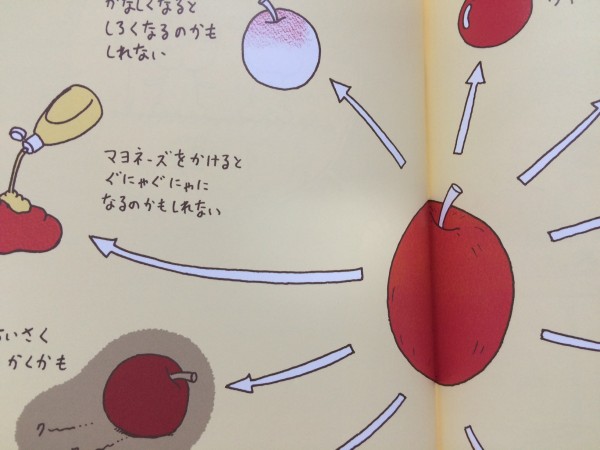 かなしくなると
しろくなるのかも
しれない
マヨネーズをかけると
ぐにゃぐにゃに
なるのかもしれない
いさく
かくかも
クー…